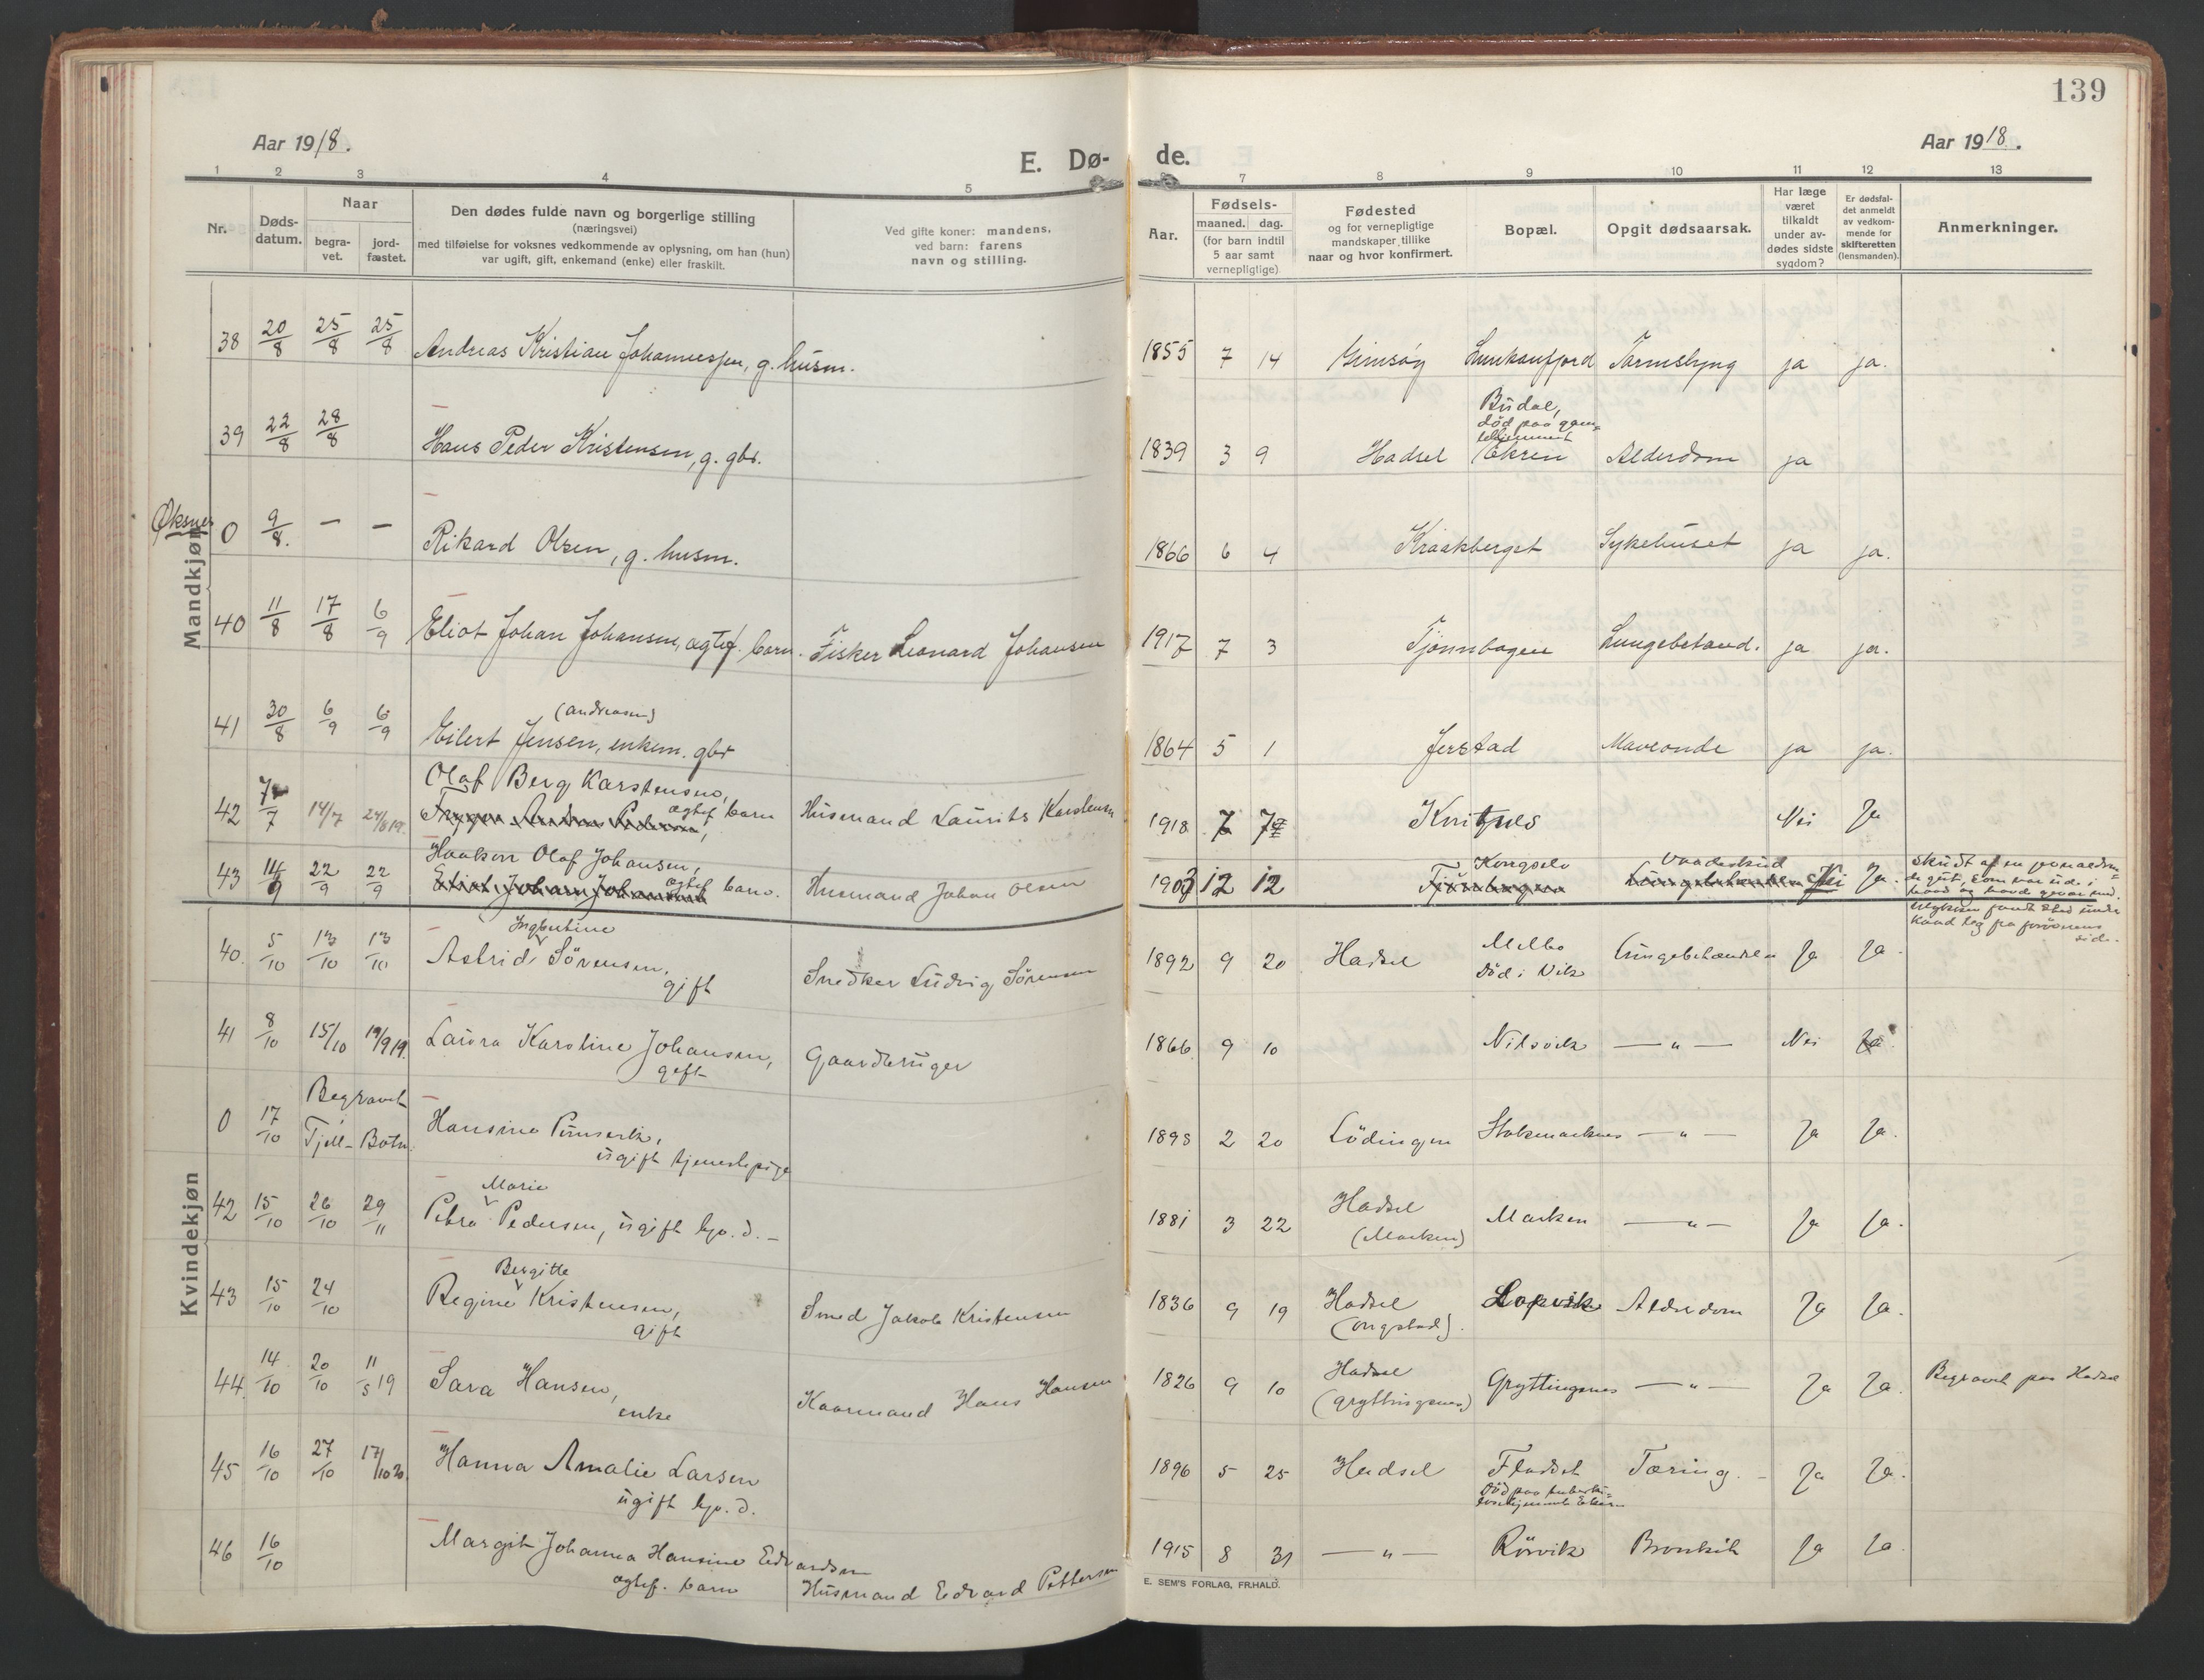 139
Aar 1918.
E. Dø-
de.
Aar 1918.
1 2 3 4 5 7 8 9 10 11 12 13
Nr.
Døds-
datum.
Naar
begra-
vet.
jord-
fæstet.
Den dødes fulde navn og borgerlige stilling
(næringsvei)
med tilføielse for voksnes vedkommende av oplysning, om han (hun)
var ugift, gift, enkemand (enke) eller fraskilt.
Ved gifte koner: mandens,
ved barn: farens
navn og stilling.
Aar.
Fødsels-
maaned. dag.
(for barn indtil
5 aar samt
vernepligtige)
Fødested
og for vernepligtige
mandskaper tillike
naar og hvor konfirmert.
Bopæl.
Opgit dødsaarsak.
Har læge
været
tilkaldt
under av-
dødes sidste
sygdom?
Er dødsfal-
det anmeldt
av vedkom-
mende for
skifteretten
(lensmanden).
Anmerkninger.
Mandkjøn
38 20/8 25/8 25/8 Andreas Kristian Johannessen, g. husm. 1855 7 14 Gimsøy Tarmslyng ja ja.
39 22/8 28/8 Hans Peder Kristensen, g. gbr. 1839 3 9 Hadsel Budal,
død paa gam=
lehjemmet
Ekren Alderdom ja
Øksnes 0 9/8. — — Rikard Olsen, g. husm. 1866 6 4 Kraakberget Sykehuset ja ja.
40 11/8 17/8 6/9 Eliot Johan Johansen, ægtef. barn. Fisker Leonard Johansen 1917 7 3 Tjønnhagen Lungebetænd. ja ja.
(Andreasen)
41 30/8 6/9 6/9 Eilert Jensen, enkem. gbr 1864 5 1 Jerstad ja ja.
Olaf Berg Karstensen,
42 7/7 14/7 24/8 19. ægtef. barn Husmand Laurits Karstensen 1918 7 7 Nei Ja
Haakon Olaf Johansen,
43 14/9 22/9 22/9 Eliot Johan Johansen ægtef. barn. Husmand Johan Olsen 1903 12 12 Tjønnhagen Vaadeskud Nei Ja.
Skudt af en
Kvindekjøn
Ingbertine
40. 5/10 13/10 13/10 Astrid Sørensen,
gift Snedker Ludvig Sørensen 1892 9 20 Hadsel Melbo
Død i Vik Lungebetændelse Ja Ja.
41 8/10 15/10 19/9 19. Laura Karoline Johansen,
gift Gaardbruger 1866 9 10 Nilsvik — " — Nei Ja.
0 17/10 Begravet
Fjell-Botn. Hansine
ugift tjenestepige 1898 2 20 Lödingen Stokmarknes — " — Ja Ja.
Marie
42 15/10 26/10 29/11 Petra Pedersen, ugift hjv. d. — 1881 3 22 Hadsel
(Marken) Marken — " — Ja Ja.
Bergitte
43 15/10 24/10 Regine Kristensen,
gift Smed Jakob Kristensen 1836 9 19 Hadsel
(Ongstad). Alderdom Ja Ja.
44. 14/10 20/10 11/5 19 Sara Hansen,
enke Kaarmand Hans Hansen 1826 9 10 Hadsel
(Gryttingsnes) Gryttingsnes — " — Ja Ja. Begravet paa Hadsel
45 16/10 27/10 17/10 20. Hanna Amalie Larsen
ugift hjv. d. 1896 5 25 Hadsel Fladset
Død paa tuberku=
losehjemmet Ekren Tæring. — Ja Ja.
46 16/10 Margit Johanna Hansine Edvardsen
ægtef. barn Husmand Edvard Pettersen 1915 8 31 — " — Rörvik Bronkit Ja Ja
E. SEM'S FORLAG, FR.HALD.